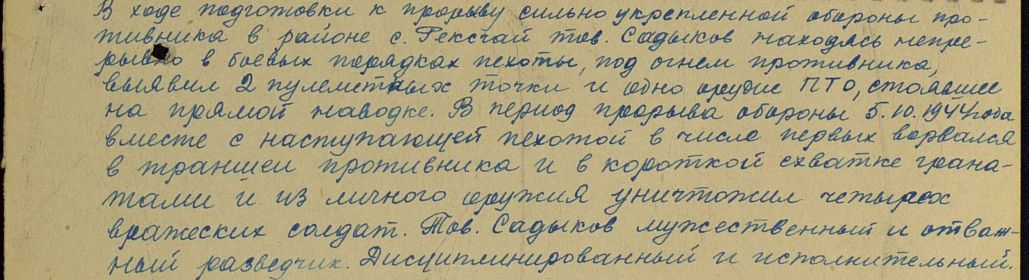 В ходе подготовки к прорыву сильно укрепленной обороны про-
тивника в районе с. Рексчай тов. Садыков находясь непре-
рывно в боевых порядках пехоты, под огнем противника,
выявил 2 пулеметных точки и одно орудие ПТО, стоявшее
на прямой наводке. В период прорыва обороны 5.10.1944 года
вместе с наступающей пехотой в числе первых ворвался
в траншеи противника и в короткой схватке грана-
тами и из личного оружия уничтожил четырех
вражеских солдат. Тов. Садыков мужественный и отваж-
ный разведчик. Дисциплинированный и исполнительный.